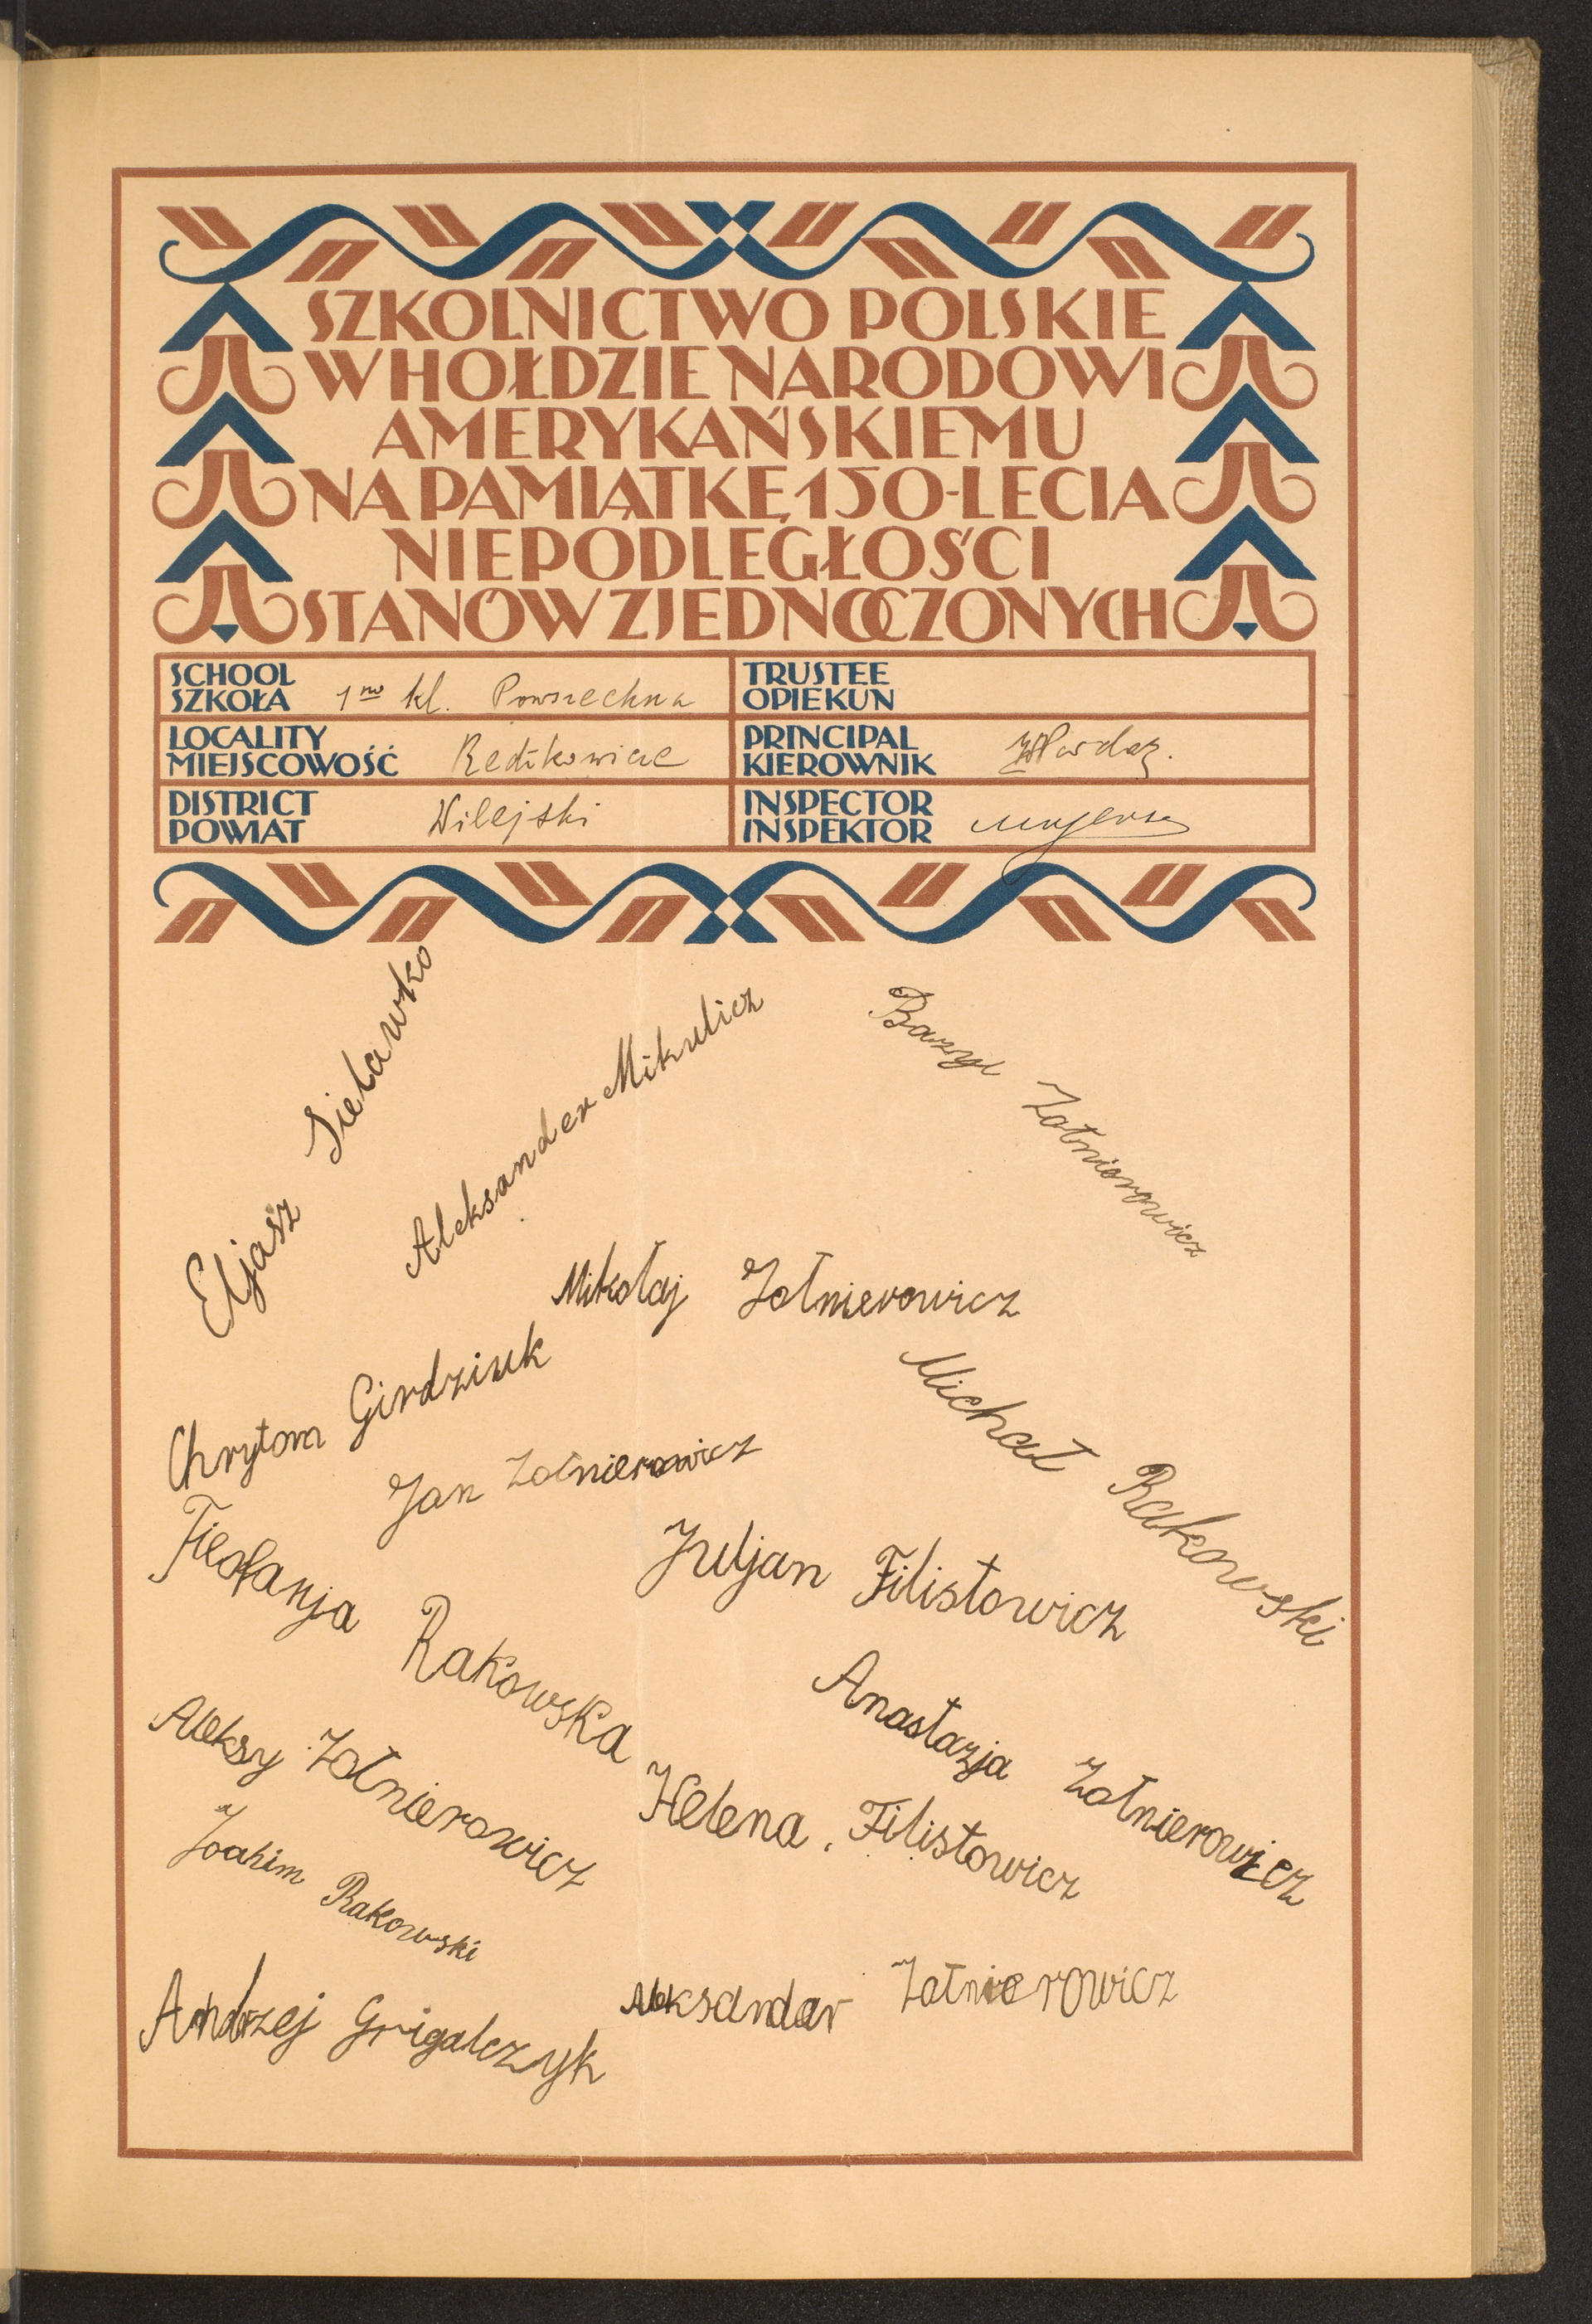 SZKOLNICTWO POLSKIE
W HOŁDZIE NARODOWI
AMERYKAŃSKIEMU
NA PAMIĄTKĘ 150-LECIA
NIEPODLEGŁOŚCI
STANÓW ZJEDNOCZONYCH
SCHOOL
SZKOŁA 1no kl. Powszechna
TRUSTEE
OPIEKUN
LOCALITY
MIEJSCOWOŚĆ Redźkowicze
PRINCIPAL
KIEROWNIK
DISTRICT
POWIAT Wilejski
INSPECTOR
INSPEKTOR
Eljasz Sielawko
Aleksander Mikulicz
Bazyl Żołnierowicz
Mikołaj Żołnierowicz
Chrytom Girdziuk
Michał Rakowski
Jan Żołnierowicz
Fieofanja Rakowska
Juljan Filistowicz
Anastazja Żołnierowicz
Aleksy Żołnierowicz
Helena Filistowicz
Joahim Rakowski
Andrzej Grigalczyk
Aleksandar Żołnierowicz